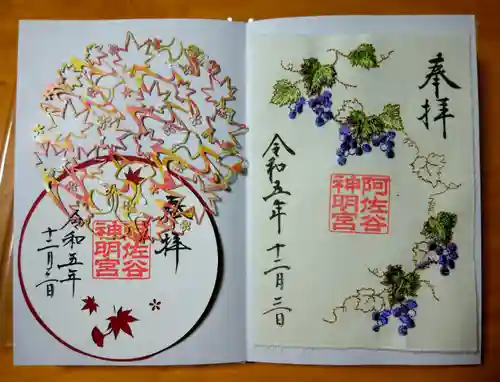 奉拝
阿佐谷
神明宮
令和五年
十二月二日
奉拝
阿佐谷
神明宮
令和五年 十二月二日